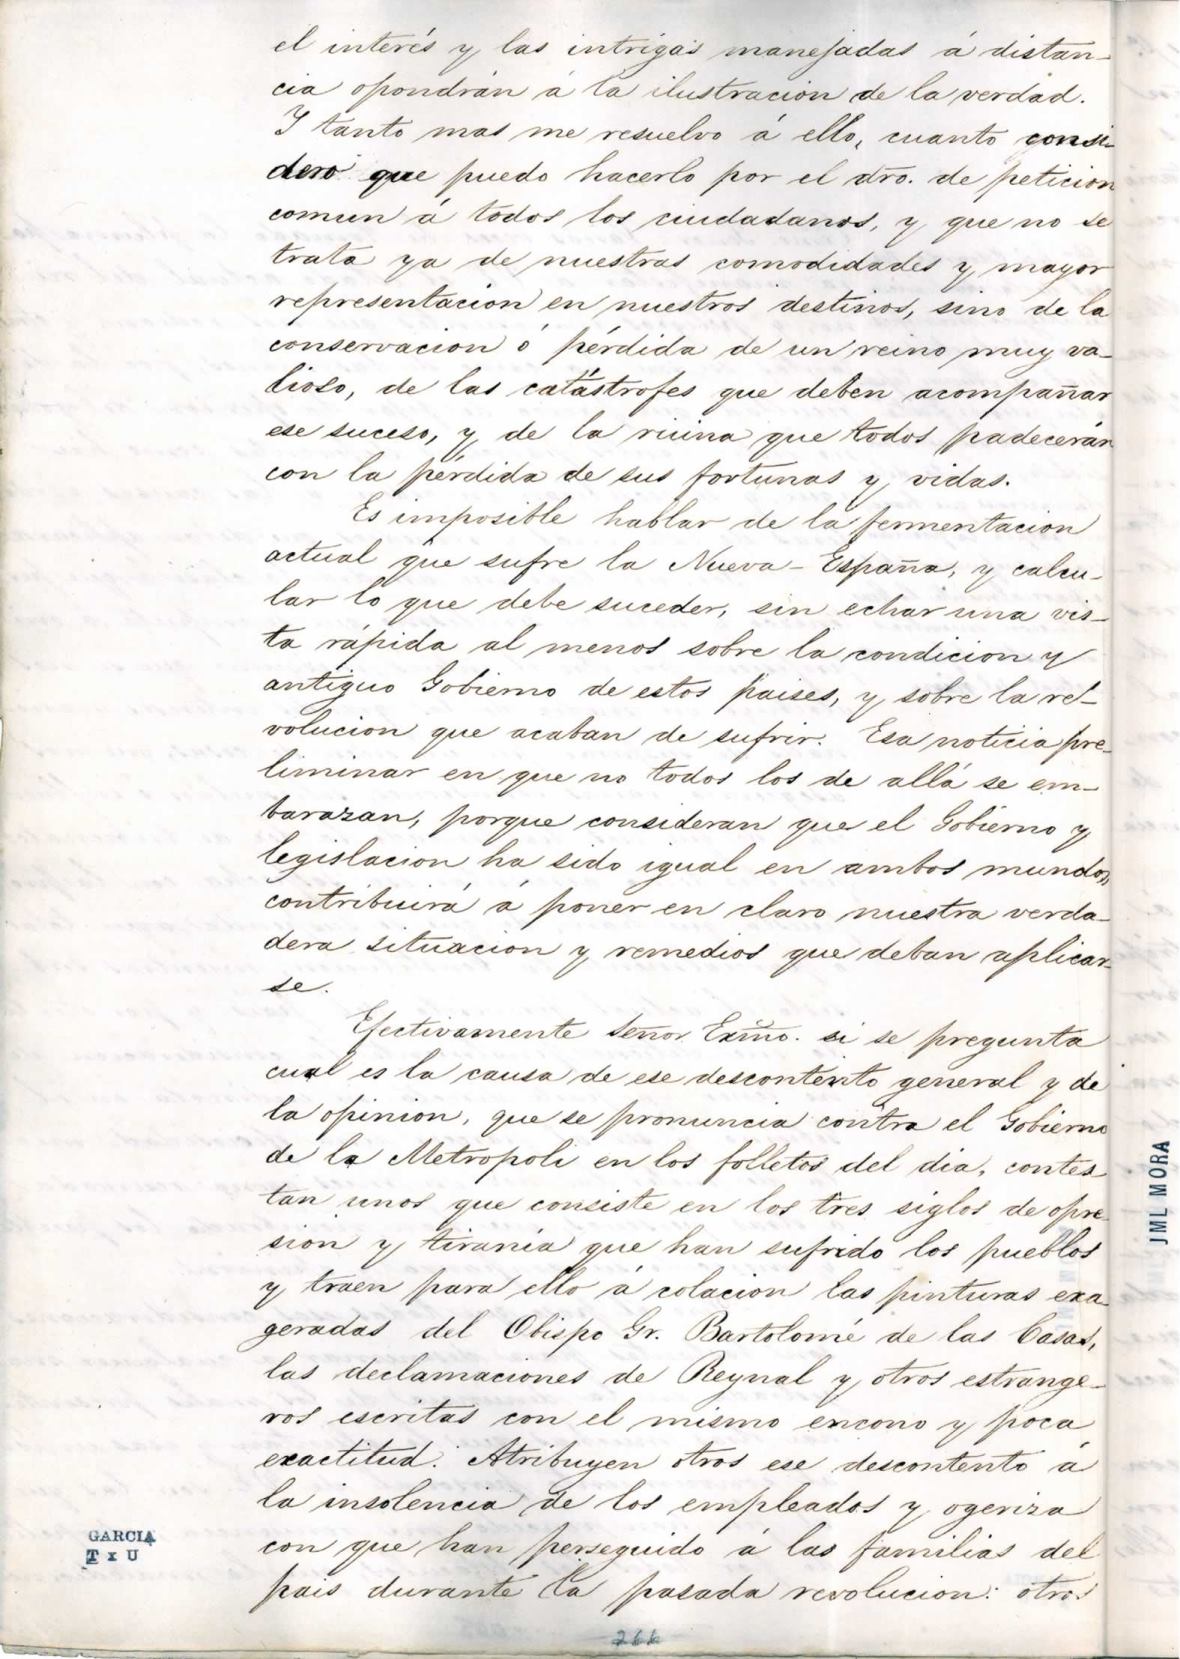 el interés y las intrigas manejadas á distan-
cia opondrán á la ilustracion de la verdad.
Y tanto mas me resuelvo á ello, cuanto consi-
dero que puedo hacerlo por el dro. de peticion
comun á todos los ciudadanos, y que no se
trata ya de nuestras comodidades y mayor
representacion en nuestros destinos, sino de la
conservacion ó pérdida de un reino muy va-
lioso, de las catástrofes que deben acompañar
ese suceso, y de la ruina que todos padecerán
con la pérdida de sus fortunas y vidas.
Es imposible hablar de la fermentacion
actual que sufre la Nueva-España, y calcu-
lar lo que debe suceder, sin echar una vis-
ta rápida al menos sobre la condicion y
antiguo Gobierno de estos paises, y sobre la re-
volucion que acaban de sufrir. Esa noticia pre-
liminar en que no todos los de allá se em-
barazan, porque consideran que el Gobierno y
legislacion ha sido igual en ambos mundos,
contribuirá á poner en claro nuestra verda-
dera situacion y remedios que deban aplicar-
se.
Efectivamente Señor Exmo. si se pregunta
cual es la causa de ese descontento general y de
la opinion, que se pronuncia contra el Gobierno
de la Metropoli en los folletos del dia, contes-
tan unos que consiste en los tres siglos de opre-
sion y tirania que han sufrido los pueblos
y traen para ello á colacion las pinturas exa-
geradas del Obispo Gr. Bartolomé de las Casas,
las declamaciones de Reynal y otros estrange-
ros escritas con el mismo encono y poca
exactitud. Atribuyen otros ese descontento á
la insolencia de los empleados y ogeriza
con que han perseguido á las familias del
pais durante la pasada revolucion: otros
GARCIA
T x U
JML MORA
266